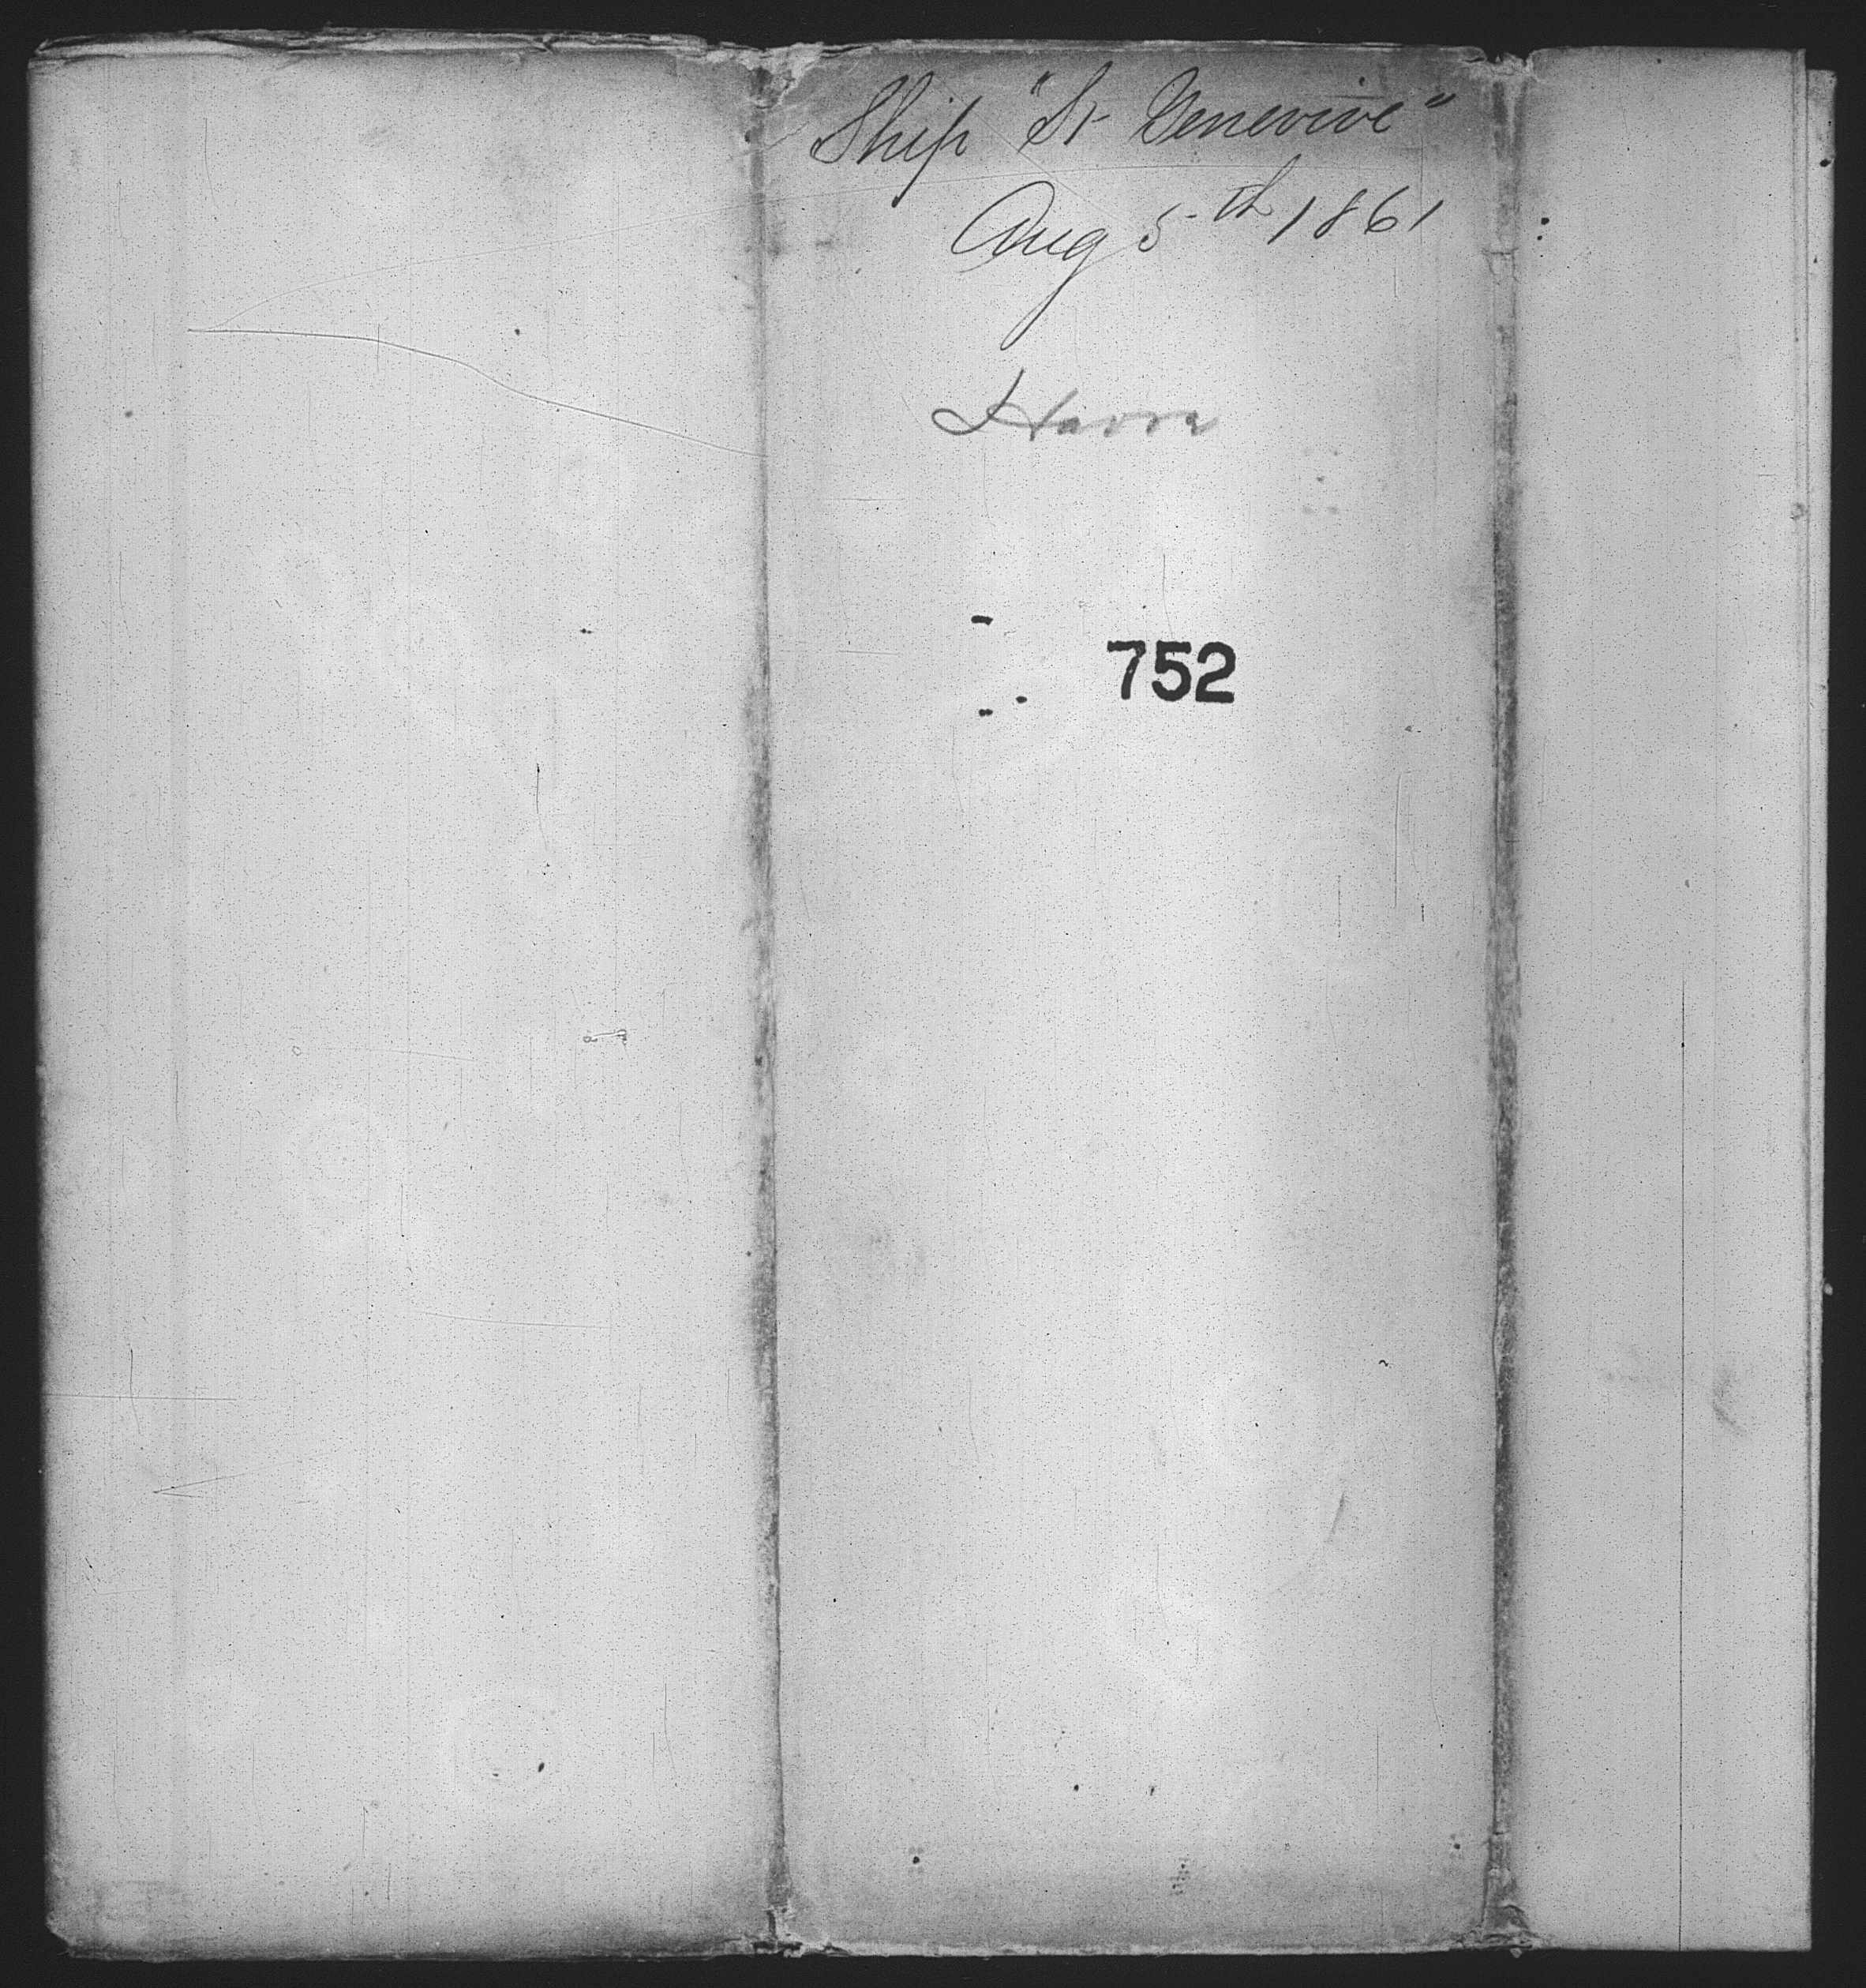 Ship "St Genevive"
Aug 5th 1861
Havre
752